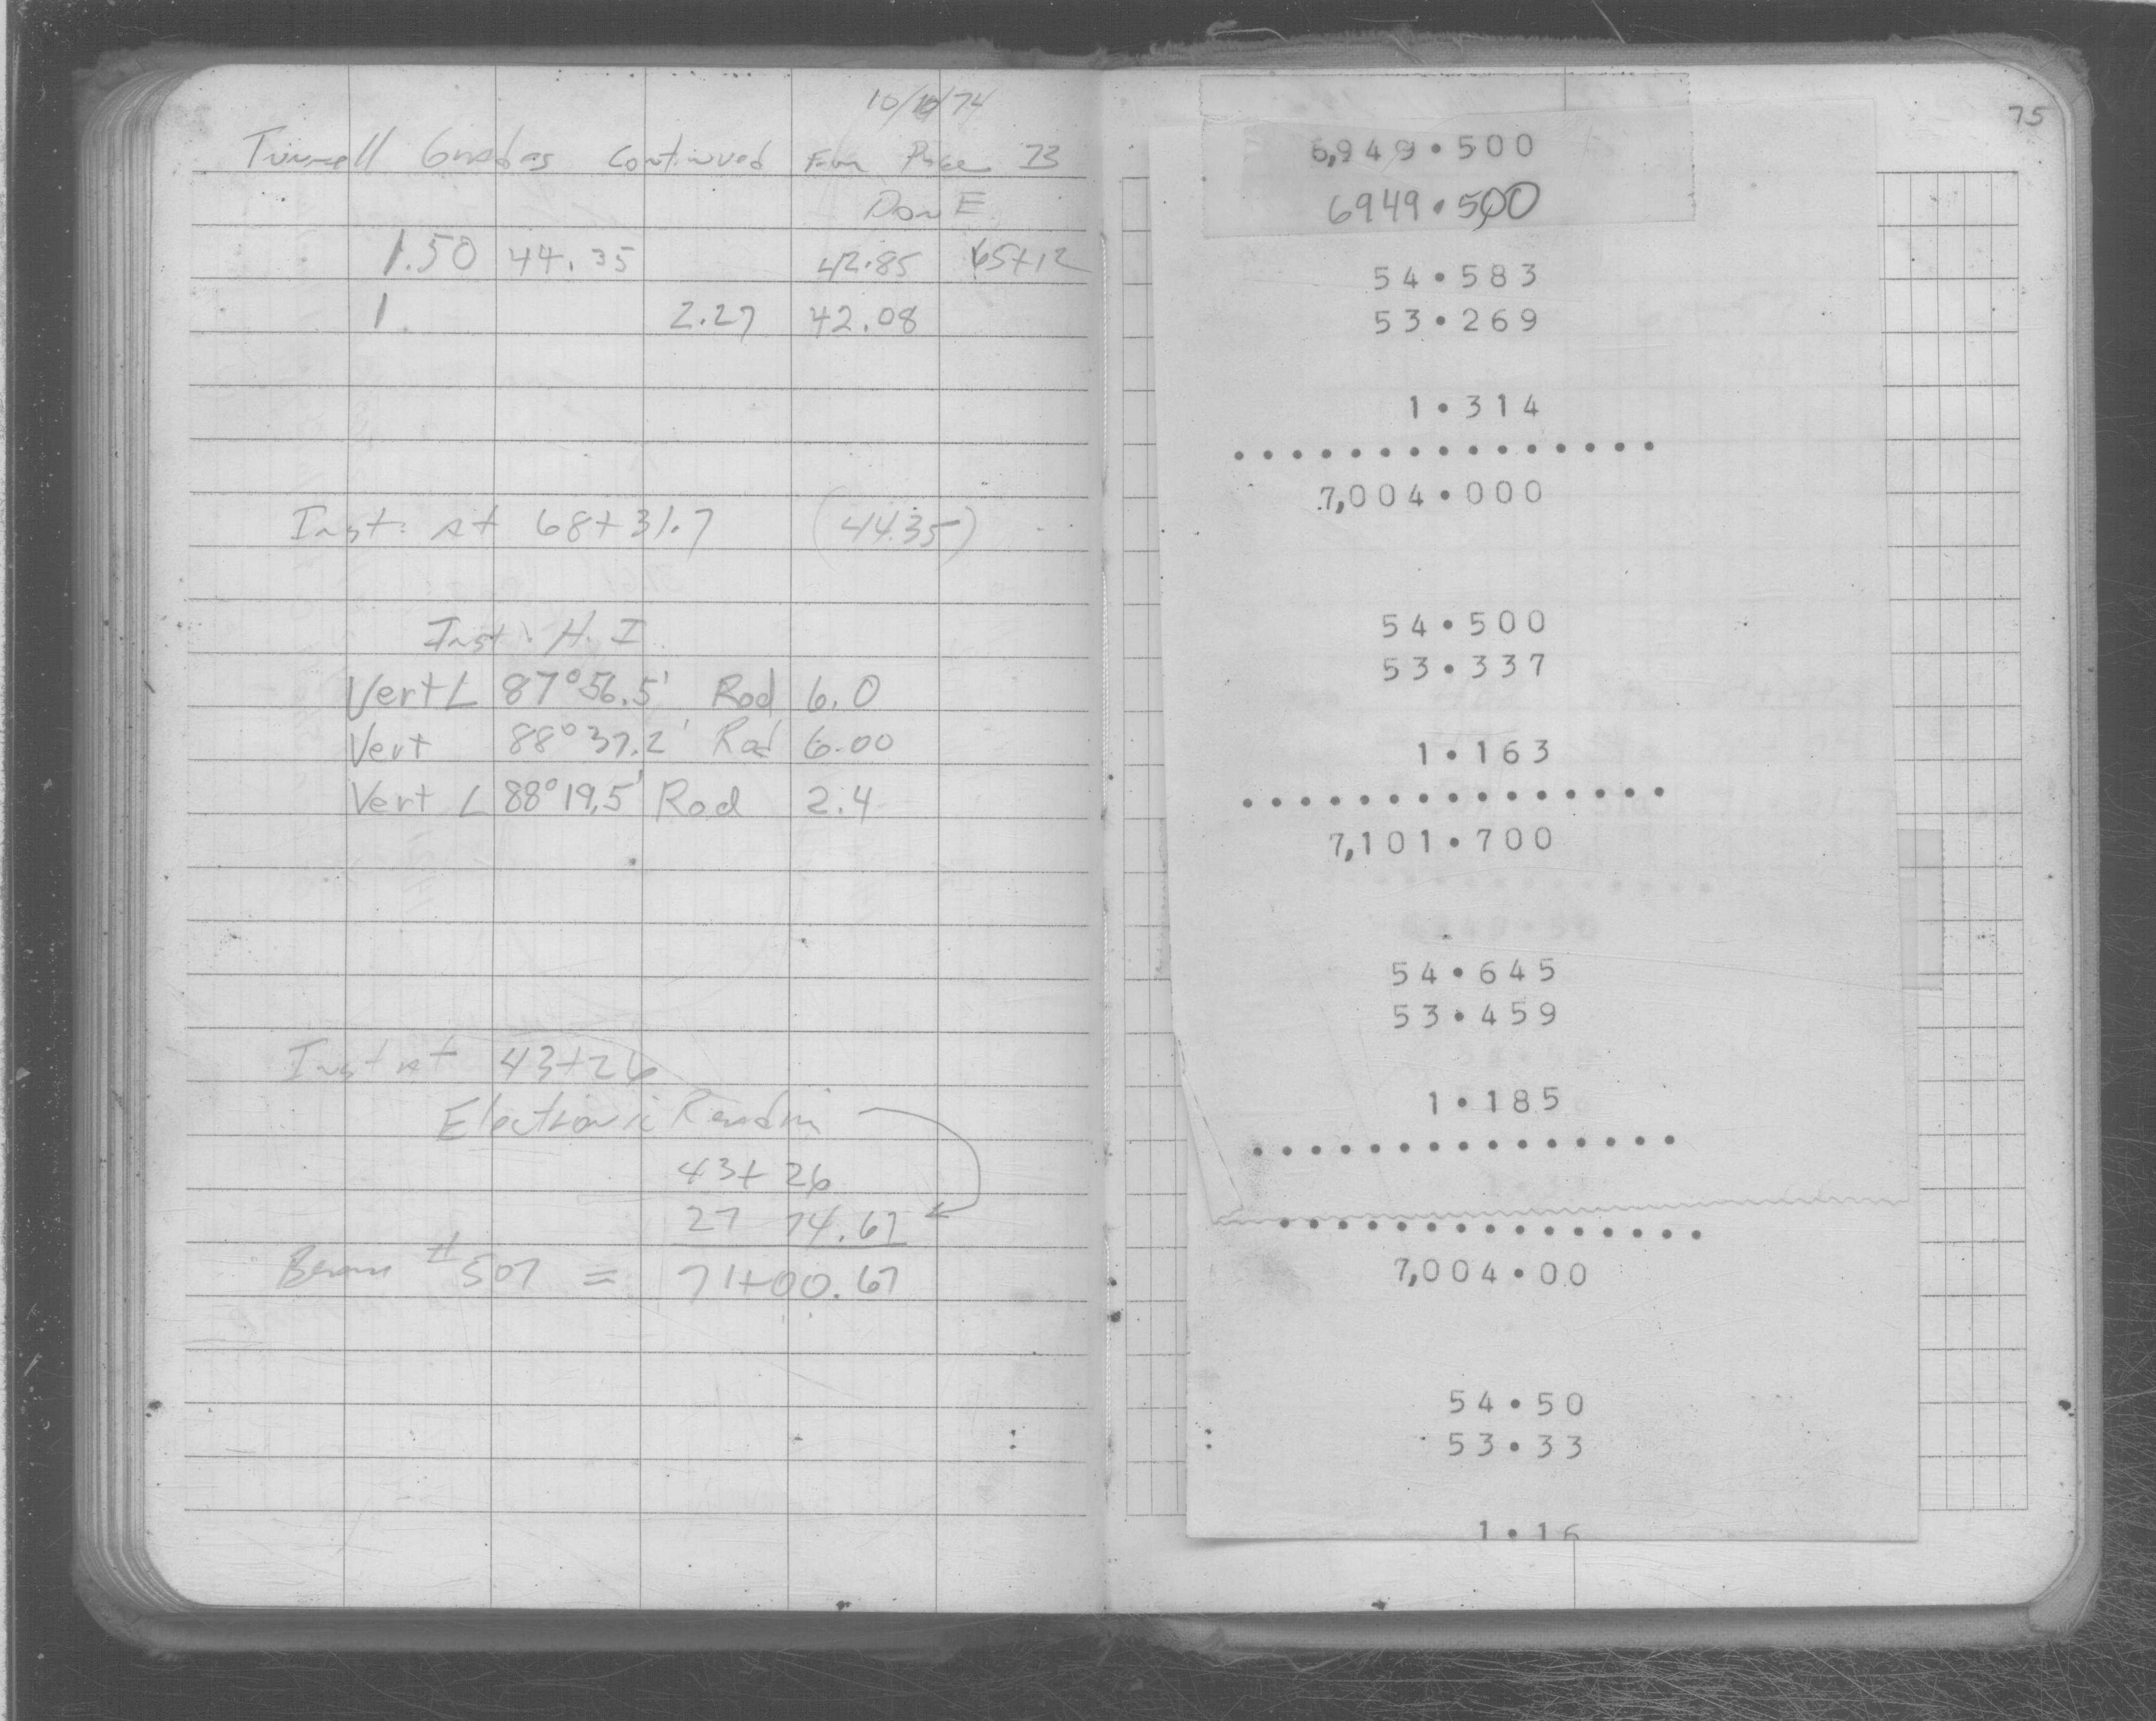 10/10/74
Tunnell Grades Continued From Page 73
Don E
1.50 44.35 42.85 65+12
1 2.27 42.08
Inst. At 68+31.7 (44.35)
Inst. H. I
Vert L 87°56.5' Rod 6.0
Vert 88°37.2' Rod 6.00
Vert L 88°19.5' Rod 2.4
Inst at 43+26
Electronic Readin
43+26
27 74.67
Beam #507 = 71+00.67
75
6,949.500
6949.500
54.583
53.269
1.314
...............
7,004.000
54.500
53.337
1.163
...............
7,101.700
54.645
53.459
1.185
...............
...............
7,004.00
54.50
53.33
1.16